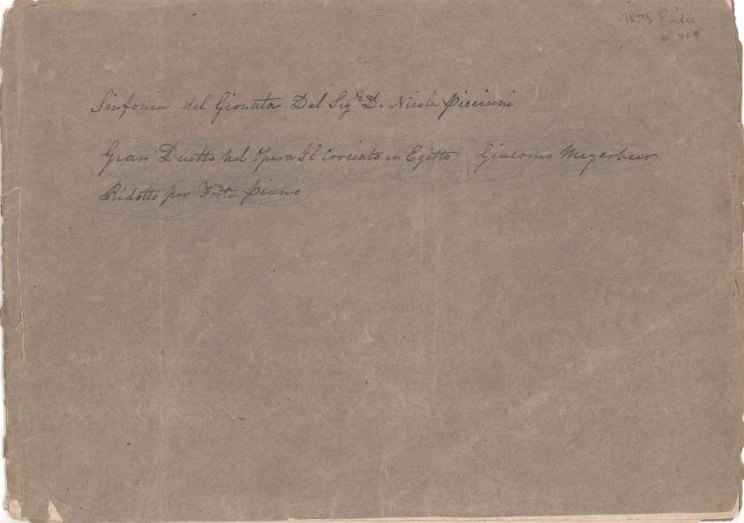 Sinfonia del Gionata Del Sigre D. Nicola Piccinni
Gran Duetto nel Opera Il Crociato in Egitto Giacomo Meyerbeer
Ridotto per Forte Piano